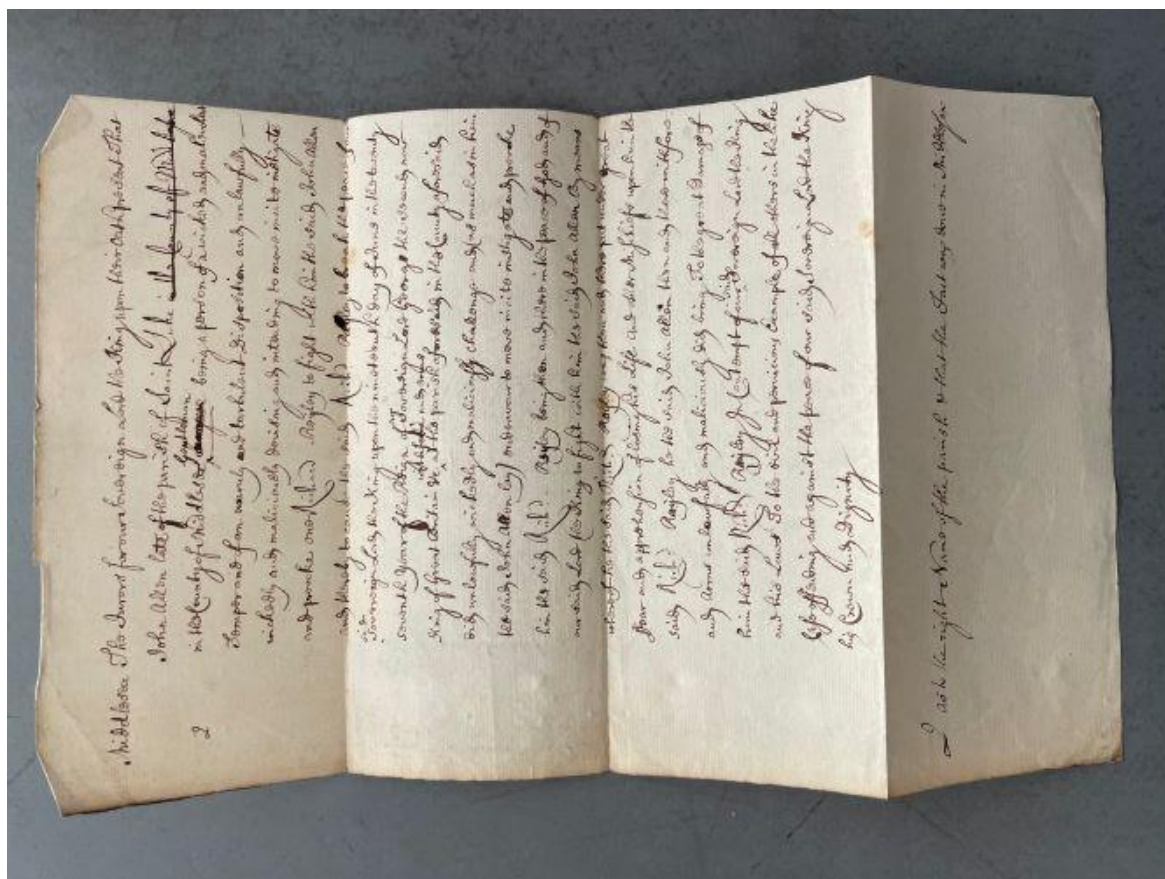 Middlesex The Jurors for our Sovereign Lord the King upon their Oath present That
John Allen late of the parish of Saint Luke in the County of Middlesex
in the County of Middlesex Gentleman being a person of a wicked and malicious
Temper and of an unruly and turbulent Disposition and unlawfully
wickedly and maliciously devising and intending to move incite instigate
2
and provoke one Richd Bayley to fight with him the said John Allen
and thereby to the said Richd Bayley to
Sovereign Lord the King upon the day of June in the twenty
seventh year of the Reign of Sovereign Lord George the second now
King of Great Britain &c at the parish aforesaid in the County aforesaid
did unlawfully wickedly and maliciously challenge and as much as in him
the said John Allen lay) endeavour to move incite instigate and provoke
him the said Richd Bayley being then and there in the peace of God and of
our said Lord the King to fight with him the said John Allen By means
whereof he the said Richd Bayley was then and there put in great
Fear and apprehension of losing his Life and other Mischiefs upon him the
said Richd Bayley he the said John Allen then and there with force
and Arms unlawfully and maliciously did bring To the great Damage of
him the said Richd Bayley In Contempt of our said Sovereign Lord the King
and his Laws To the evil and pernicious Example of all others in the like
Case offending and against the peace of our said Sovereign Lord the King
his Crown and Dignity
2 as to the right Name of the parish & that the Fact was done in